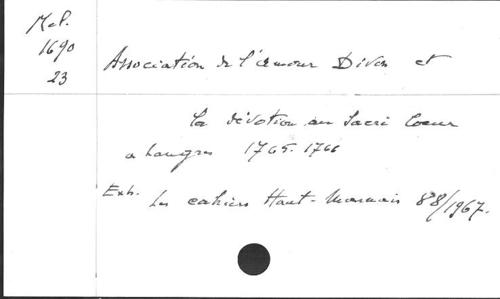 Mel.
1690
23
Association de l'amour Divin et
la dévotion au Sacré Coeur
a Langres 1765-1766
Ext. Les cahiers Haut-Marnais 88/1967.